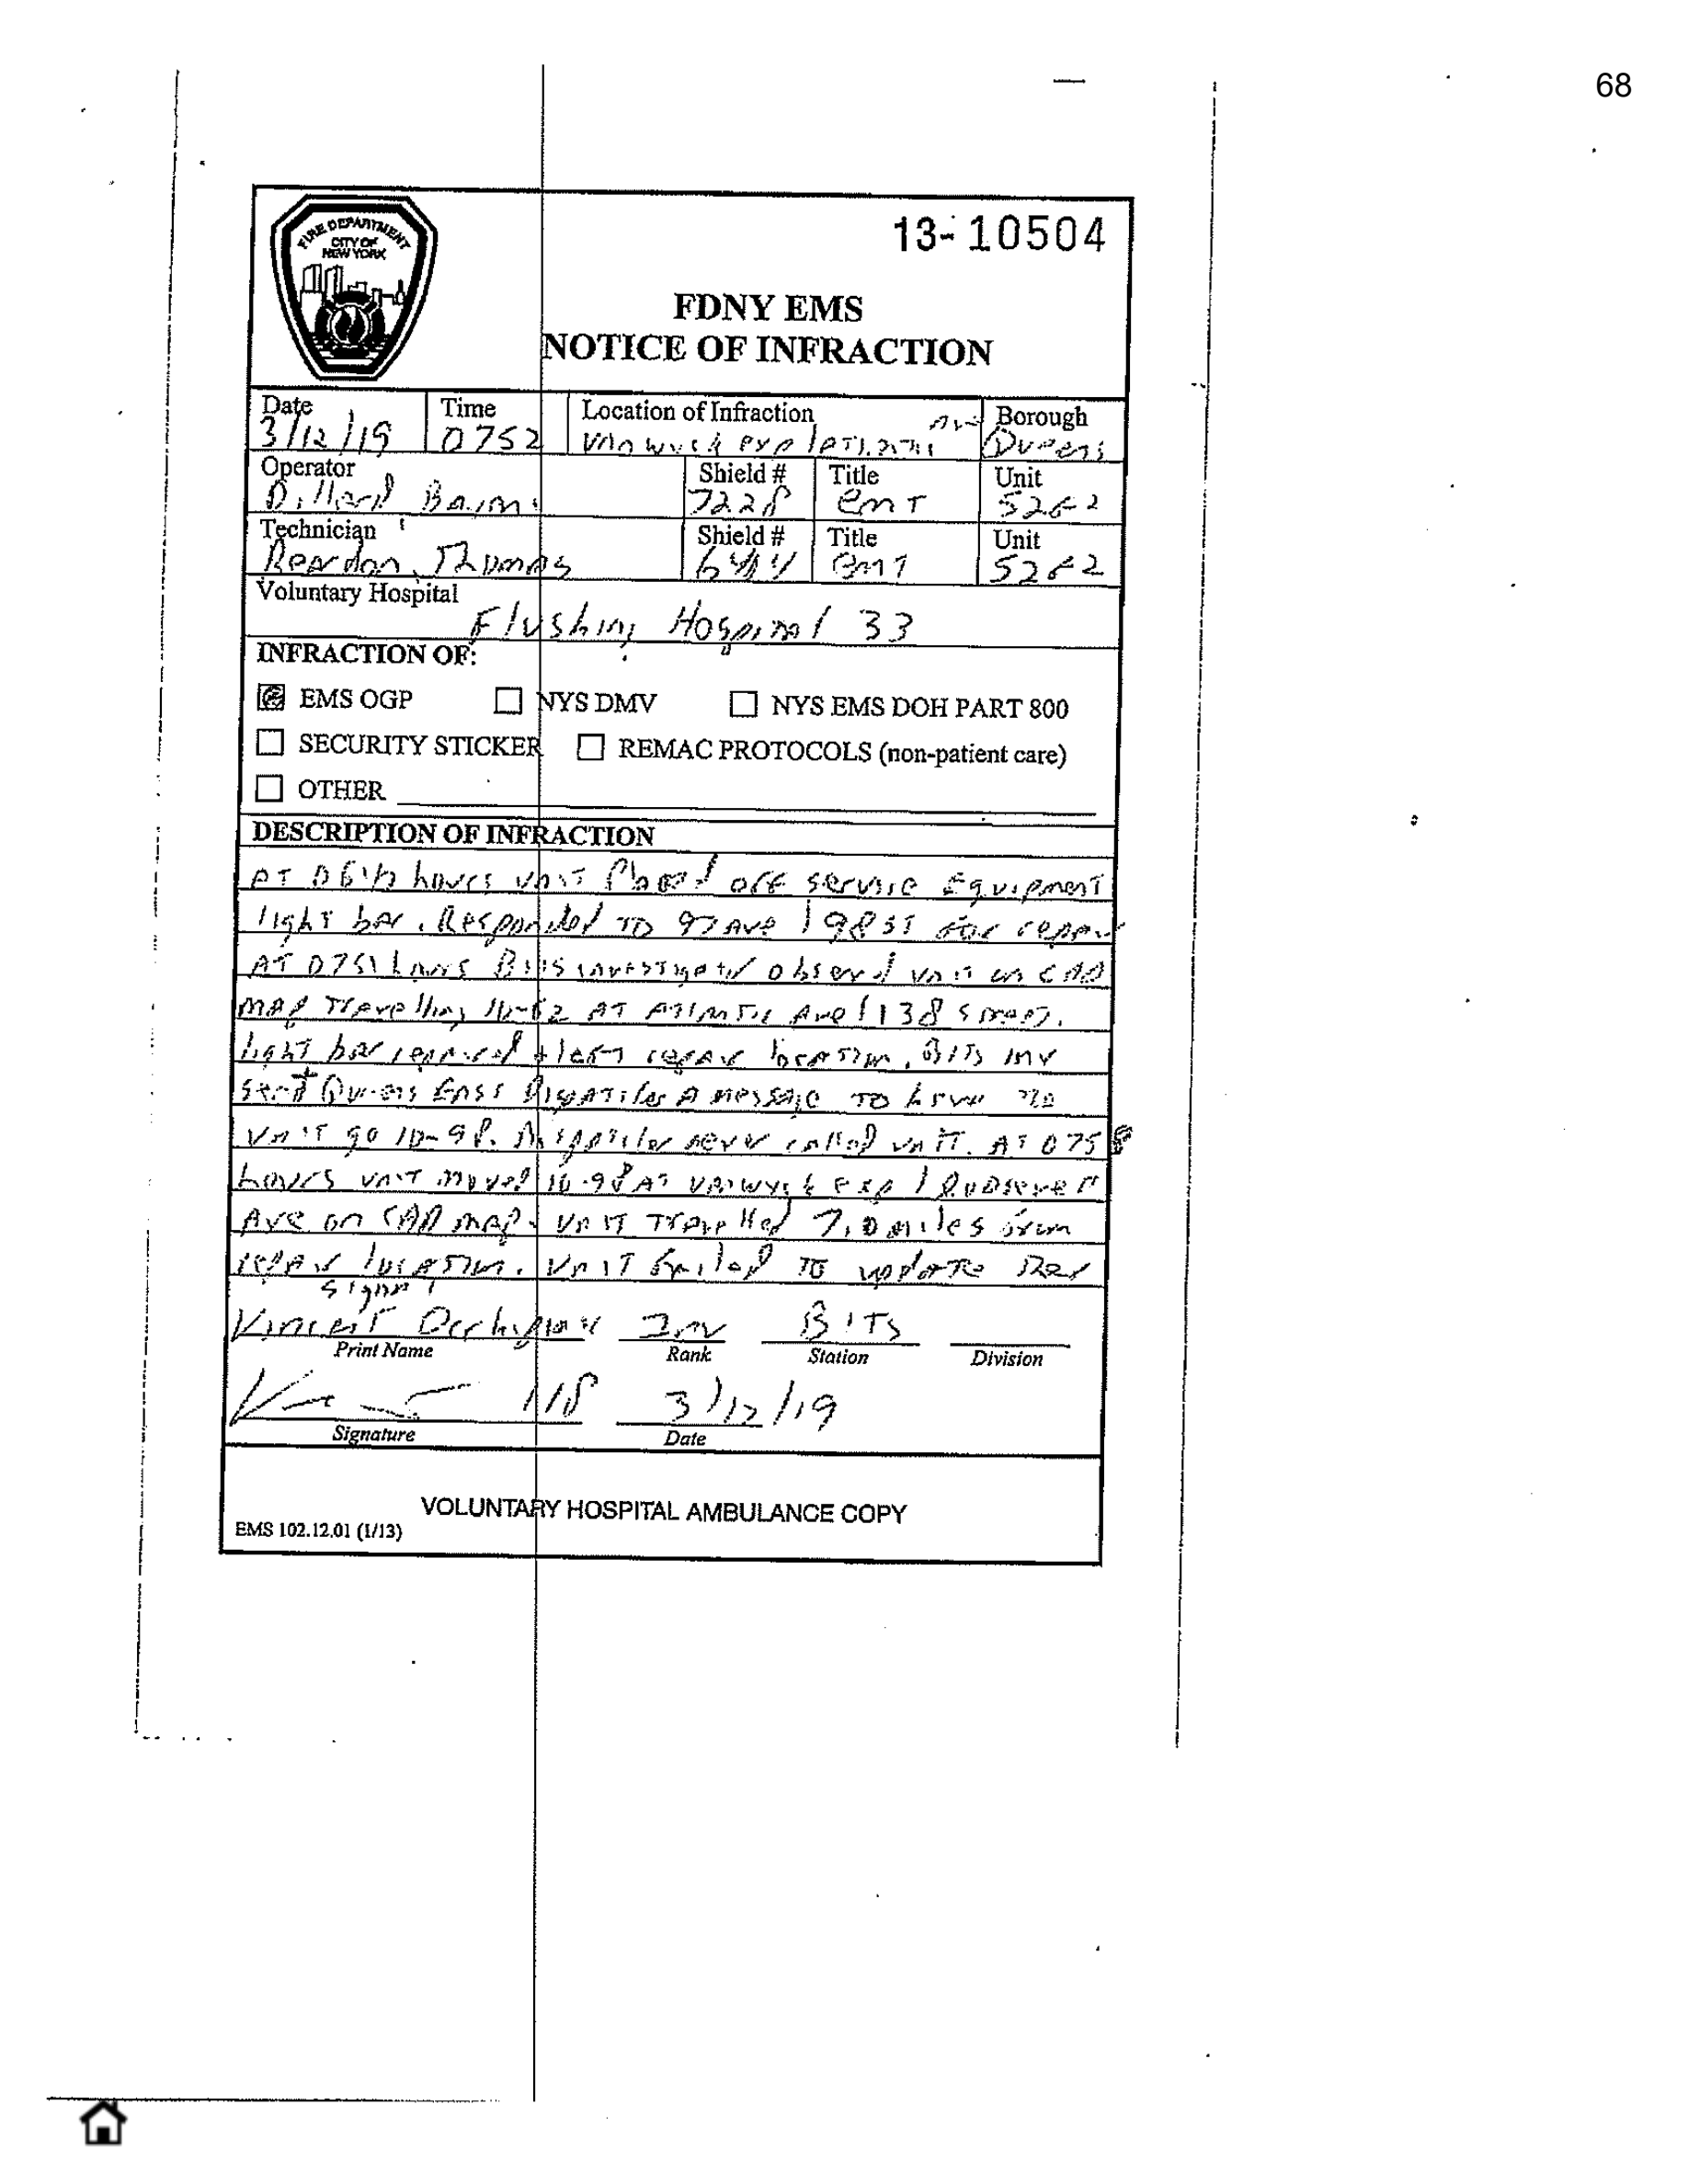 68
FIRE DEPARTMENT
CITY OF
NEW YORK
13-10504
FDNY EMS
NOTICE OF INFRACTION
Date Time Location of Infraction Borough
3/12/19 0752 Vanwyck exp / Atlantic Ave Queens
Operator Shield # Title Unit
Dillard 7228 EMT 52F2
Technician Shield # Title Unit
Reardon, Thomas EMT 52F2
Voluntary Hospital
Flushing Hospital 33
INFRACTION OF:
EMS OGP NYS DMV NYS EMS DOH PART 800
SECURITY STICKER REMAC PROTOCOLS (non-patient care)
OTHER
DESCRIPTION OF INFRACTION
AT hours unit Placed off service Equipment
light bar. Responded TO 97 Ave / 98 ST for repair
AT 0751 hours BITS investigator observed unit on CAD
map Travelling 10-62 AT Atlantic Ave / 138 street.
light bar repaired + left repair location. BITS INV
sent Queens East Dispatcher A message TO have The
unit go 10-98. Dispatcher never called unit. AT 0758
hours unit moved 10-98 AT Vanwyck exp /
Ave on CAD map. unit Travelled 7.0 miles from
repair location. Unit failed TO update Their
signal
Vincent Inv BITS
Print Name Rank Station Division
118 3/12/19
Signature Date
VOLUNTARY HOSPITAL AMBULANCE COPY
EMS 102.12.01 (1/13)